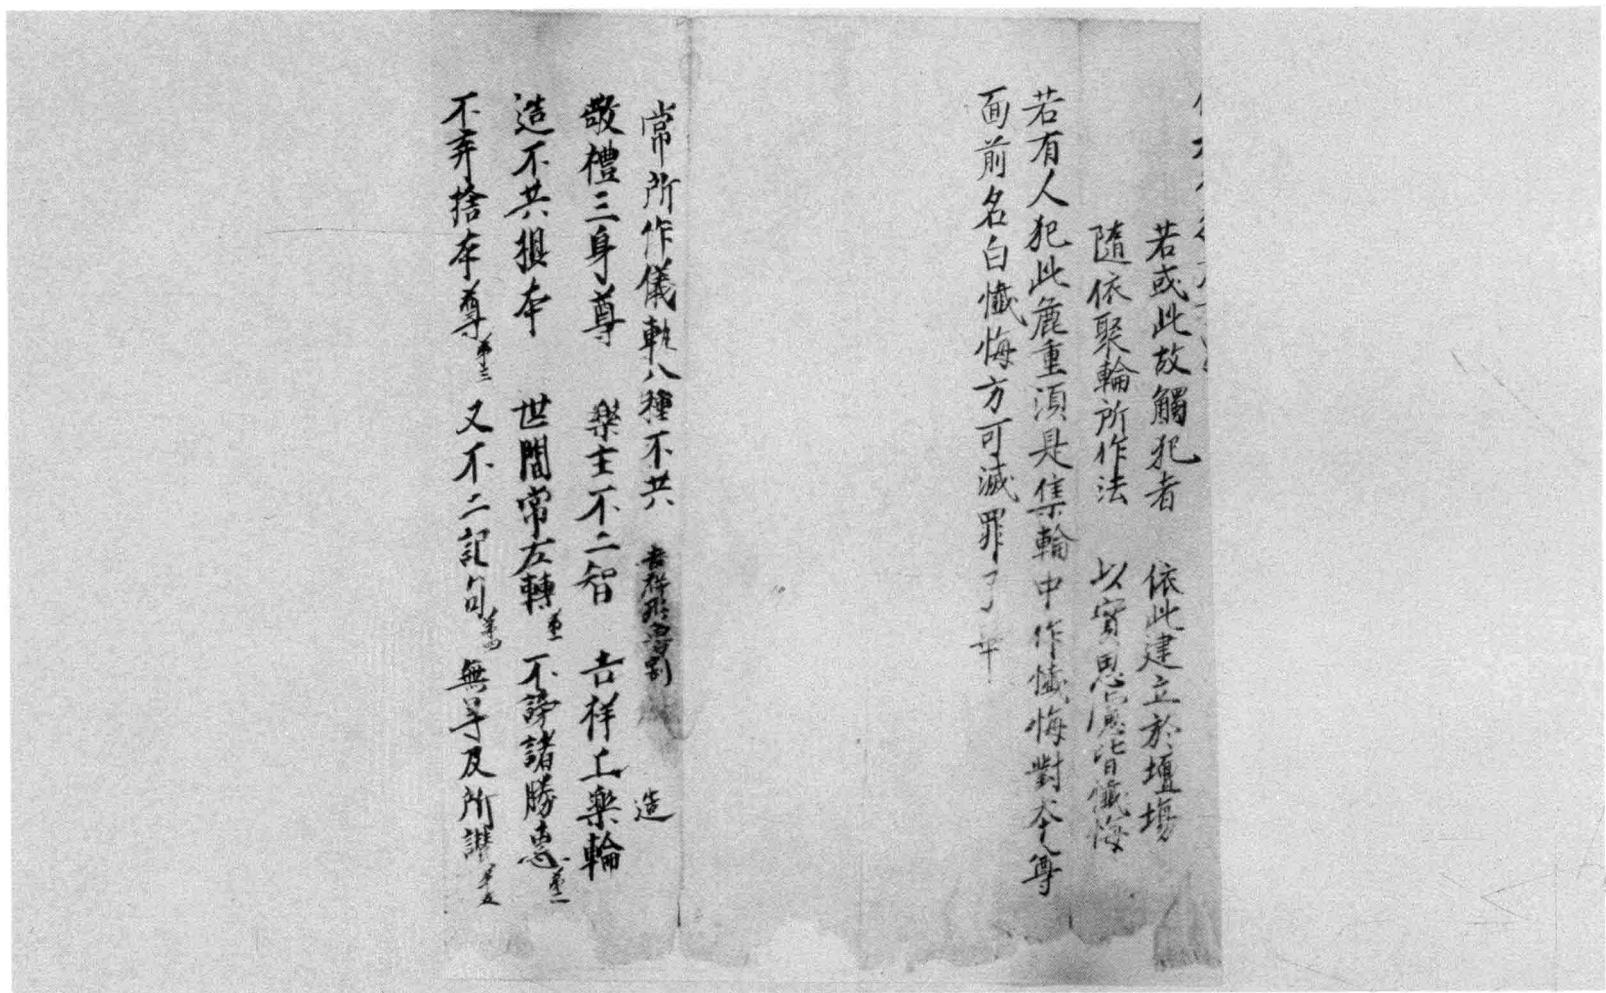 若或此故觸犯者 依此建立於壇場
隨依聚輪所作法 以實思應皆懺悔
若有人犯此麁重須是集輪中作懺悔對本尊
面前名白懺悔方可滅罪了
常所作儀軌八種不共 造
敬禮三身尊 樂主不二智 吉祥上樂輪
造不共損本 世間常左轉第一 不謗諸勝惠第二
不弃捨本尊第三 又不二記句第四 無等及所讚第五